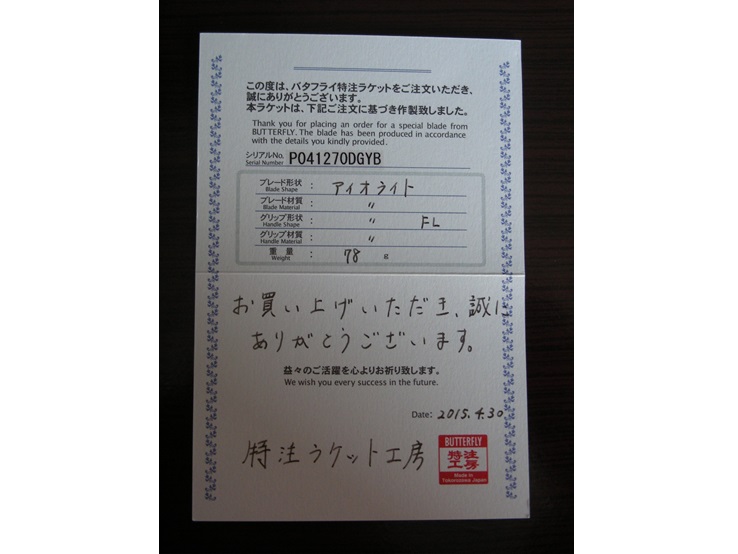 この度は、バタフライ特注ラケットをご注文いただき、
誠にありがとうございます。
本ラケットは、下記ご注文に基づき作製致しました。
Thank you for placing an order for a special blade from
BUTTERFLY. The blade has been produced in accordance
with the details you kindly provided.
シリアルNo.
Serial Number
PO41270DGYB
ブレード形状 : アイオライト
Blade Shape
ブレード材質 : 〃
Blade Material
グリップ形状 : 〃 FL
Handle Shape
グリップ材質 : 〃
Handle Material
重量 : 78 g
Weight
お買い上げいただき、誠に
ありがとうございます。
益々のご活躍を心よりお祈り致します。
We wish you every success in the future.
Date: 2015.4.30
特注ラケット工房
BUTTERFLY
特注
工房
Made in
Tokorozawa Japan